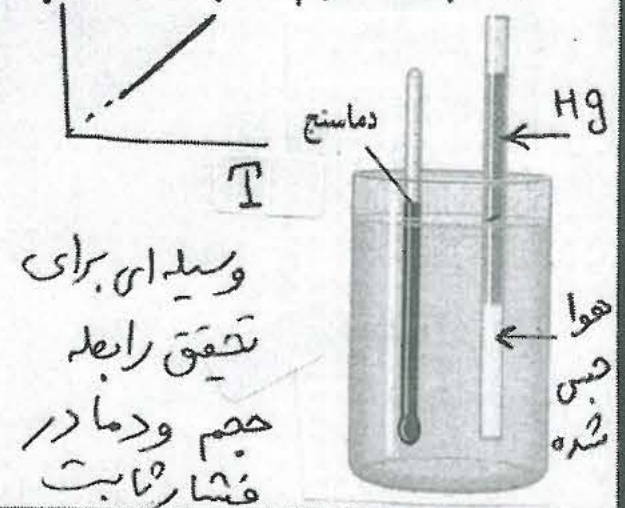 T
دماسنج
Hg
هوا
حبس
شده
وسیله ای برای
تحقیق رابطه
حجم ودما در
فشار ثابت